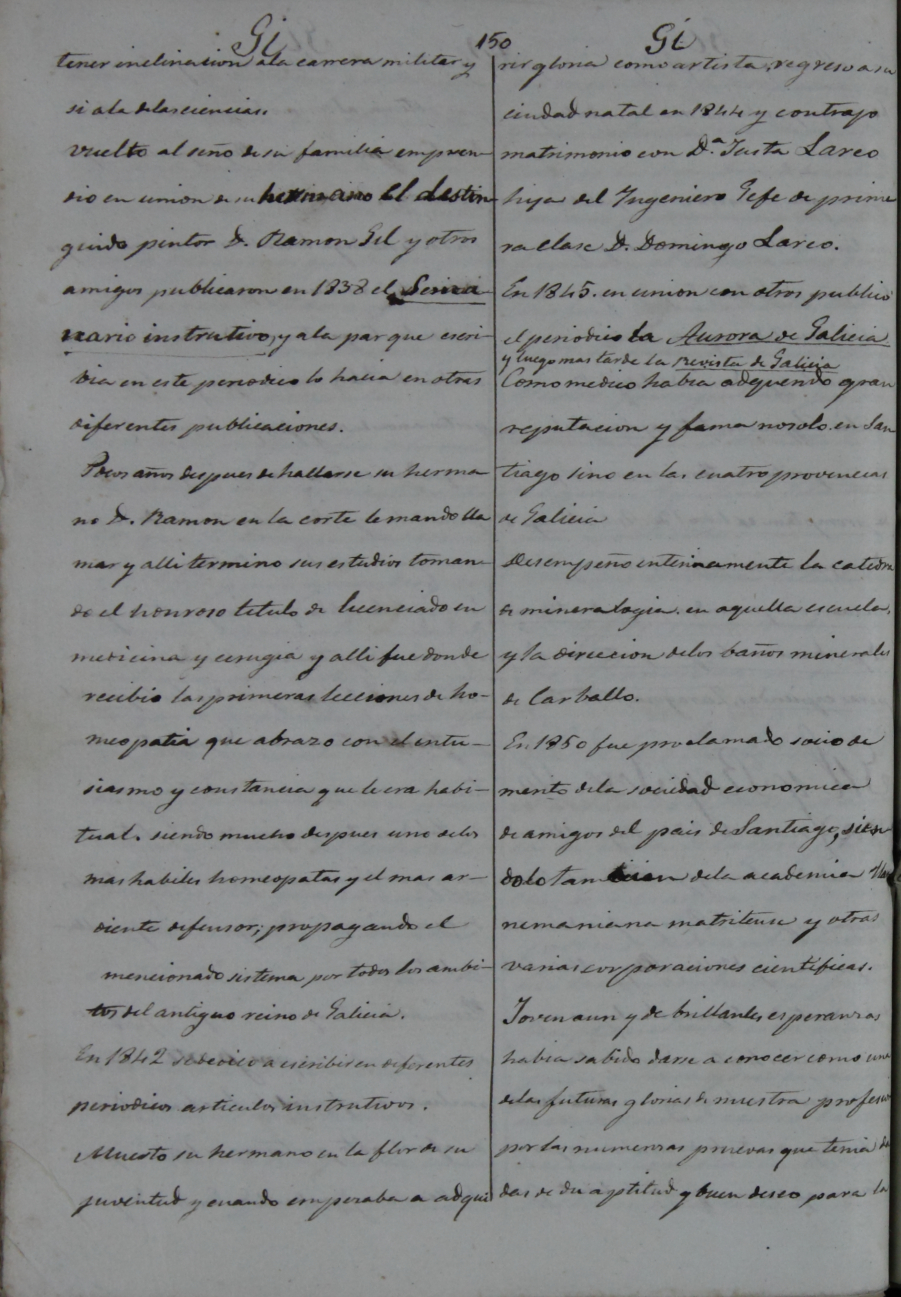 Gi
150
Gi
tener inclinacion ala carrera militar y
si ala delasciencias.
Vuelto al seno de su familia empren-
dio en union de su hermano el distin
guido pintor D. Ramon Gil y otros
amigos publicaron en 1838 el Semi
nario instrutivo, y ala par que escri-
bia en este periodico lo hacia en otras
diferentes publicaciones.
Pocos años despues de hallarse su herma
no D. Ramon en la corte le mando lla
mar y alli termino sus estudios toman-
do el honroso titulo de licenciado en
medicina y cirugia y alli fue donde
recibio las primeras lecciones de ho-
meopatia que abrazo con el entu-
siasmo y constancia que le era habi-
tual. siendo mucho despues uno delos
mas habiles homeopatas y el mas ar-
diente defensor; propagando el
mencionado sistema por todos los ambi-
tos del antiguo reino de Galicia.
En 1842 se dedico a escribir en diferentes
periodicos articulos instrutivos.
Muerto su hermano en la flor de su
juventud y cuando empezaba a adqui
rir gloria como artista, regreso a su
ciudad natal en 1844 y contrajo
matrimonio con D.ª Justa Lareo
hija del Ingeniero Gefe de prime
ra clase D. Domingo Lareo.
En 1845. en union con otros publico
el periodico La Aurora de Galicia
y luego mas tarde la Revista de Galicia
Como medico habia adquerido gran
reputacion y fama no solo. en San
tiago sino en las cuatro provincias
de Galicia
Desempeño interinamente la catedra
de mineralogia. en aquella escuela,
y la direccion delos baños minerales
de Carballo.
En 1850 fue proclamado socio de
merito dela sociedad economica
de amigos del pais de Santiago, sien
dolo tambien dela academia Ha
nemaniana matritense y otras
varias corporaciones cientificas.
Joven aun y de brillantes esperanzas
habia sabido darse a conocer como una
delas futuras glorias de nuestra profesion
por las numerosas pruevas que tenia da
das de su aptitud y buen deseo para la